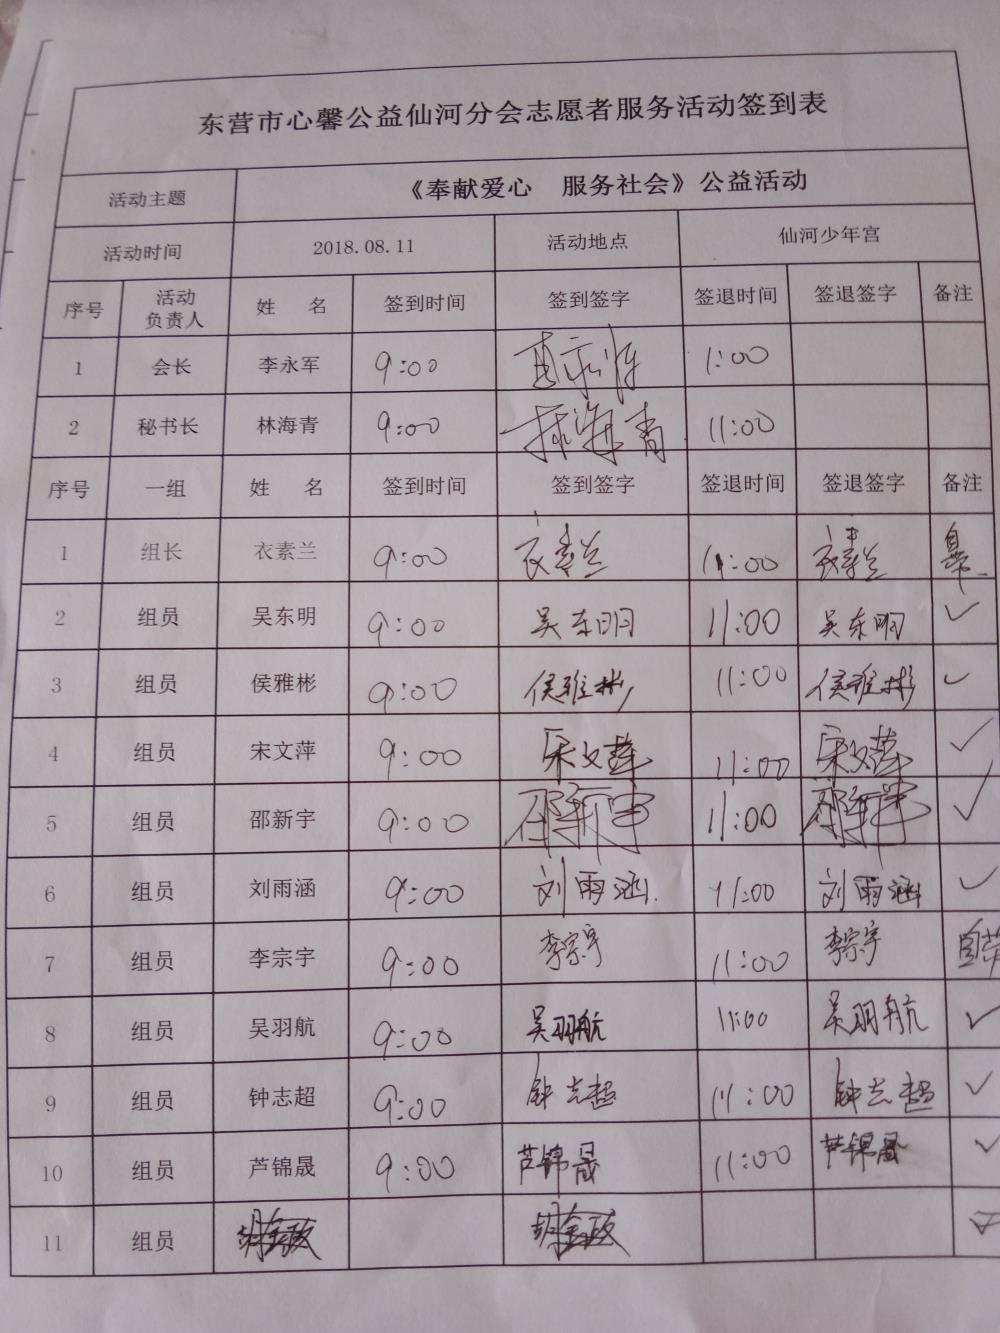 东营市心馨公益仙河分会志愿者服务活动签到表
活动主题 《奉献爱心 服务社会》公益活动
活动时间 2018.08.11 活动地点 仙河少年宫
序号 活动负责人 姓 名 签到时间 签到签字 签退时间 签退签字 备注
1 会长 李永军 9:00 1:00
2 秘书长 林海青 9:00 林海青 11:00
序号 一组 姓 名 签到时间 签到签字 签退时间 签退签字 备注
1 组长 衣素兰 9:00 衣素兰 11:00 衣素兰
2 组员 吴东明 9:00 吴东明 11:00 吴东明 ✓
3 组员 侯雅彬 9:00 侯雅彬 11:00 侯雅彬 ✓
4 组员 宋文萍 9:00 宋文萍 11:00 宋文萍 ✓
5 组员 邵新宇 9:00 邵新宇 11:00 邵新宇 ✓
6 组员 刘雨涵 9:00 刘雨涵 11:00 刘雨涵 ✓
7 组员 李宗宇 9:00 李宗宇 11:00 李宗宇
8 组员 吴羽航 9:00 吴羽航 11:00 吴羽航 ✓
9 组员 钟志超 9:00 钟志超 11:00 钟志超 ✓
10 组员 芦锦晟 9:00 芦锦晟 11:00 芦锦晟 ✓
11 组员